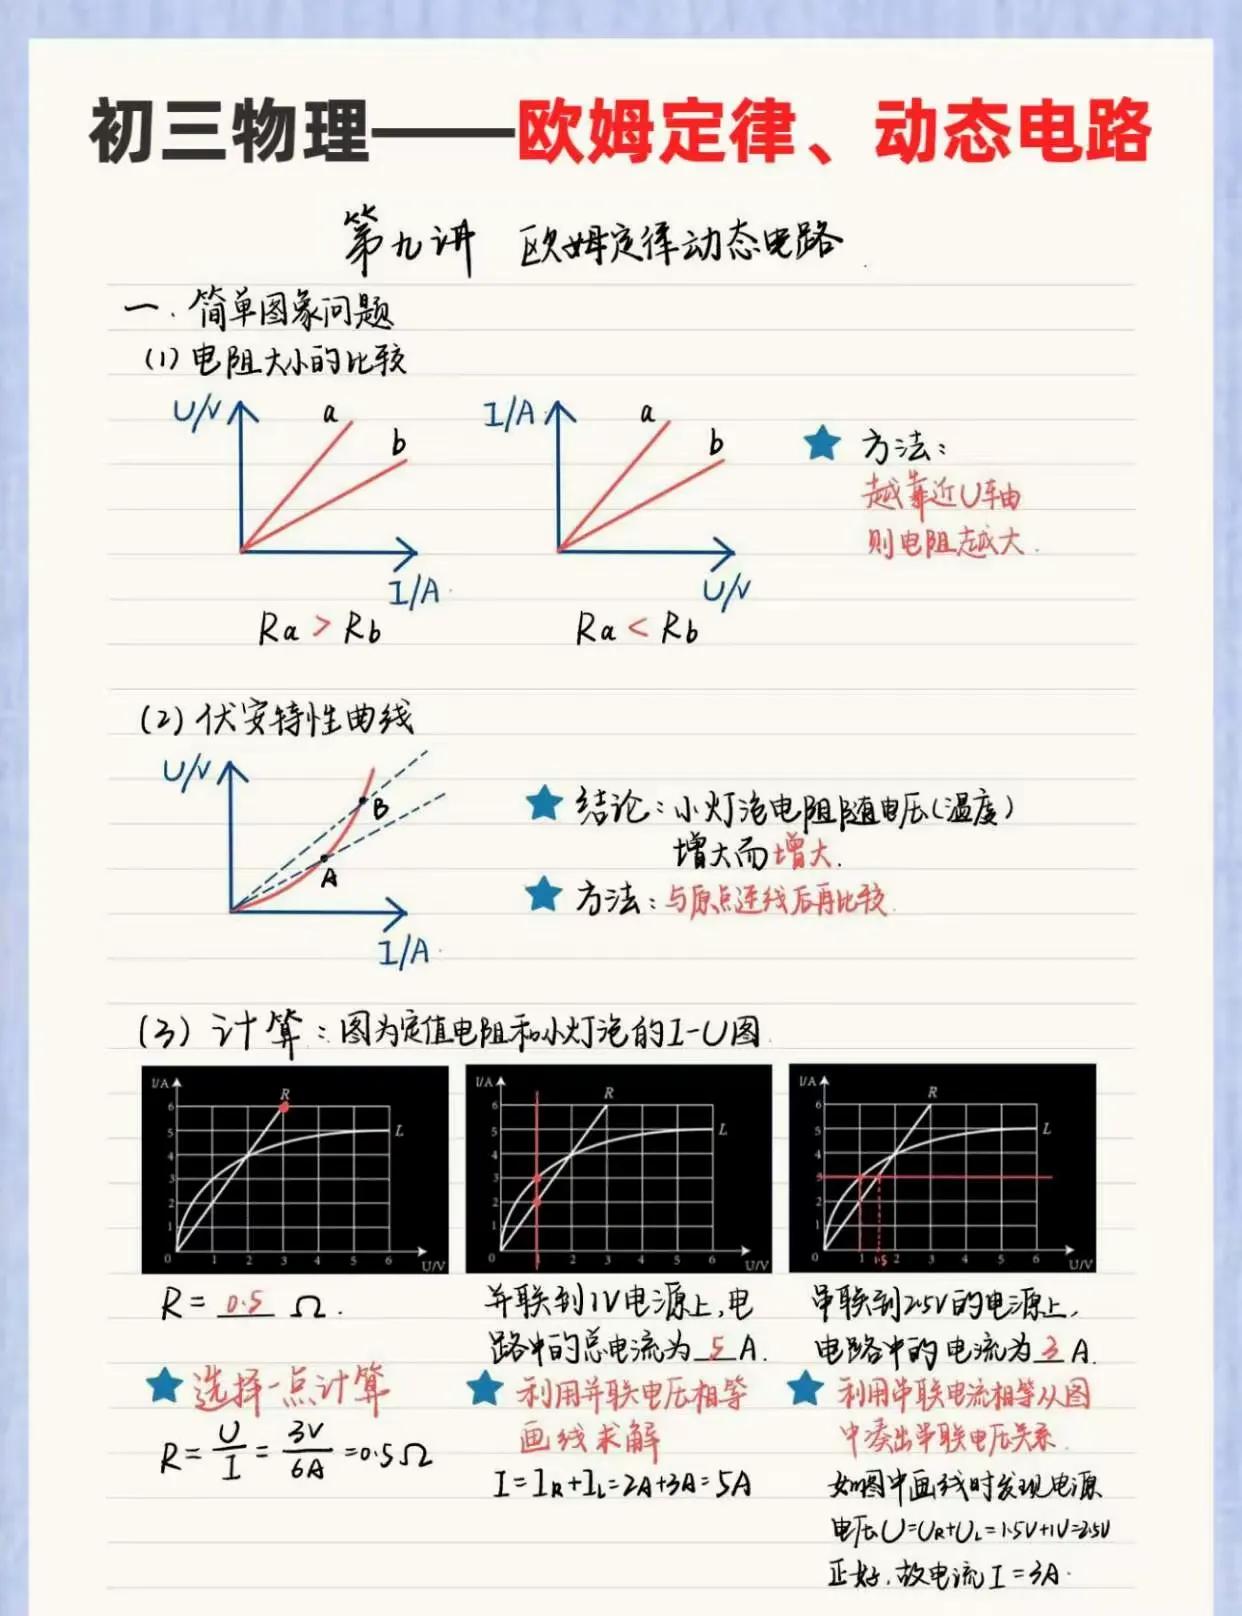 初三物理——欧姆定律、动态电路
第九讲 欧姆定律动态电路
一. 简单图象问题
(1) 电阻大小的比较
U/V a b I/A
Ra > Rb
I/A a b U/V
Ra < Rb
方法：
越靠近U轴由
则电阻越大.
(2) 伏安特性曲线
U/V B A I/A
结论：小灯泡电阻随电压(温度)
增大而增大.
方法：与原点连线后再比较.
(3) 计算：图为定值电阻和小灯泡的I-U图.
I/A R L
6
5
4
3
2
1
0 1 2 3 4 5 6 U/V
I/A R L
6
5
4
3
2
1
0 1 2 3 4 5 6 U/V
I/A R L
6
5
4
3
2
1
0 1 1.5 2 3 4 5 6 U/V
R = 0.5 Ω.
选择一点计算
R = U/I = 3V/6A = 0.5Ω
并联到1V电源上，电
路中的总电流为 5 A.
利用并联电压相等
画线求解
I = IR + IL = 2A + 3A = 5A
串联到2.5V的电源上，
电路中的电流为 3 A.
利用串联电流相等从图
中凑出串联电压关系.
如图中画线时发现电源
电压U=UR+UL=1.5V+1V=2.5V
正好，故电流I=3A.